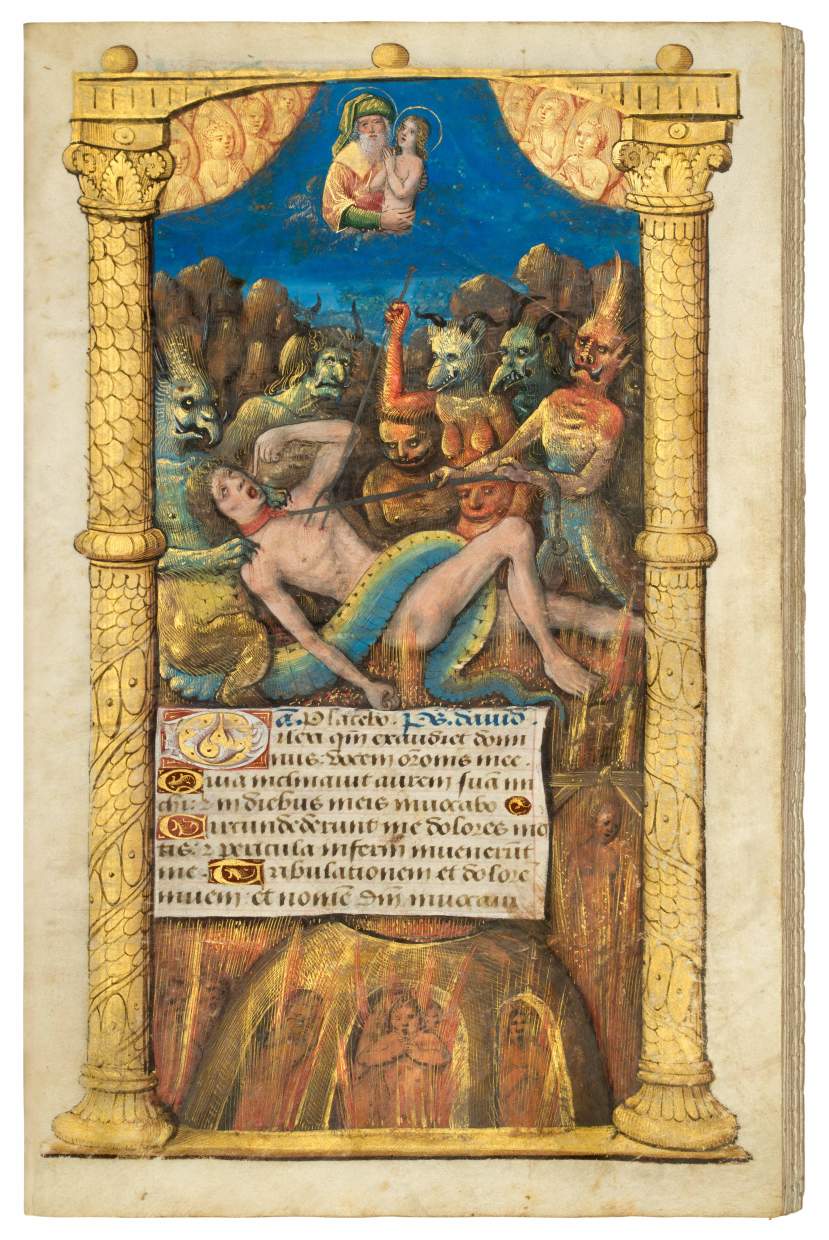 ā. Placebo. ps. dauid.
Dilexi qm̄ exaudiet domi
nus: vocem orōnis mee.
Quia inclinauit aurem suā mi
chi: ⁊ in diebus meis inuocabo
Circundederunt me dolores mo
tis: ⁊ pericula inferni inuenerūt
me. Tribulationem et dolorē
inueni et nomē dn̄i inuocaui